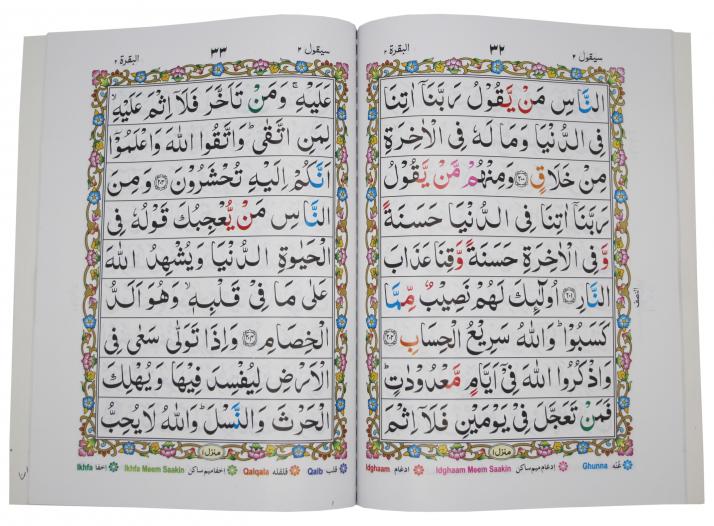 سيقول ٢ ٣٢ البقرة ٢
النَّاسِ مَنْ يَّقُوْلُ رَبَّنَاۤ اٰتِنَا
فِى الدُّنْيَا وَمَا لَهٗ فِى الْاٰخِرَةِ
مِنْ خَلَاقٍ ﴿٢٠٠﴾ وَمِنْهُمْ مَّنْ يَّقُوْلُ
رَبَّنَاۤ اٰتِنَا فِى الدُّنْيَا حَسَنَةً
وَّفِى الْاٰخِرَةِ حَسَنَةً وَّقِنَا عَذَابَ
النَّارِ ﴿٢٠١﴾ اُولٰٓئِكَ لَهُمْ نَصِيْبٌ مِّمَّا
النصف
كَسَبُوْا ؕ وَاللّٰهُ سَرِيْعُ الْحِسَابِ ﴿٢٠٢﴾
وَاذْكُرُوا اللّٰهَ فِىْۤ اَيَّامٍ مَّعْدُوْدٰتٍ ؕ
فَمَنْ تَعَجَّلَ فِىْ يَوْمَيْنِ فَلَاۤ اِثْمَ
منزل ١
غُنّه Ghunna ادغام ميم ساكن Idghaam Meem Saakin ادغام Idghaam
سيقول ٢ ٣٣ البقرة ٢
عَلَيْهِ ۚ وَمَنْ تَاَخَّرَ فَلَاۤ اِثْمَ عَلَيْهِ ۙ
لِمَنِ اتَّقٰى ؕ وَاتَّقُوا اللّٰهَ وَاعْلَمُوْۤا
اَنَّكُمْ اِلَيْهِ تُحْشَرُوْنَ ﴿٢٠٣﴾ وَمِنَ
النَّاسِ مَنْ يُّعْجِبُكَ قَوْلُهٗ فِى
الْحَيٰوةِ الدُّنْيَا وَيُشْهِدُ اللّٰهَ
عَلٰى مَا فِىْ قَلْبِهٖ ۙ وَهُوَ اَلَدُّ
الْخِصَامِ ﴿٢٠٤﴾ وَاِذَا تَوَلّٰى سَعٰى فِى
الْاَرْضِ لِيُفْسِدَ فِيْهَا وَيُهْلِكَ
الْحَرْثَ وَالنَّسْلَ ؕ وَاللّٰهُ لَا يُحِبُّ
منزل ١
قلب Qalb قلقله Qalqala اخفا ميم ساكن Ikhfa Meem Saakin اخفا Ikhfa